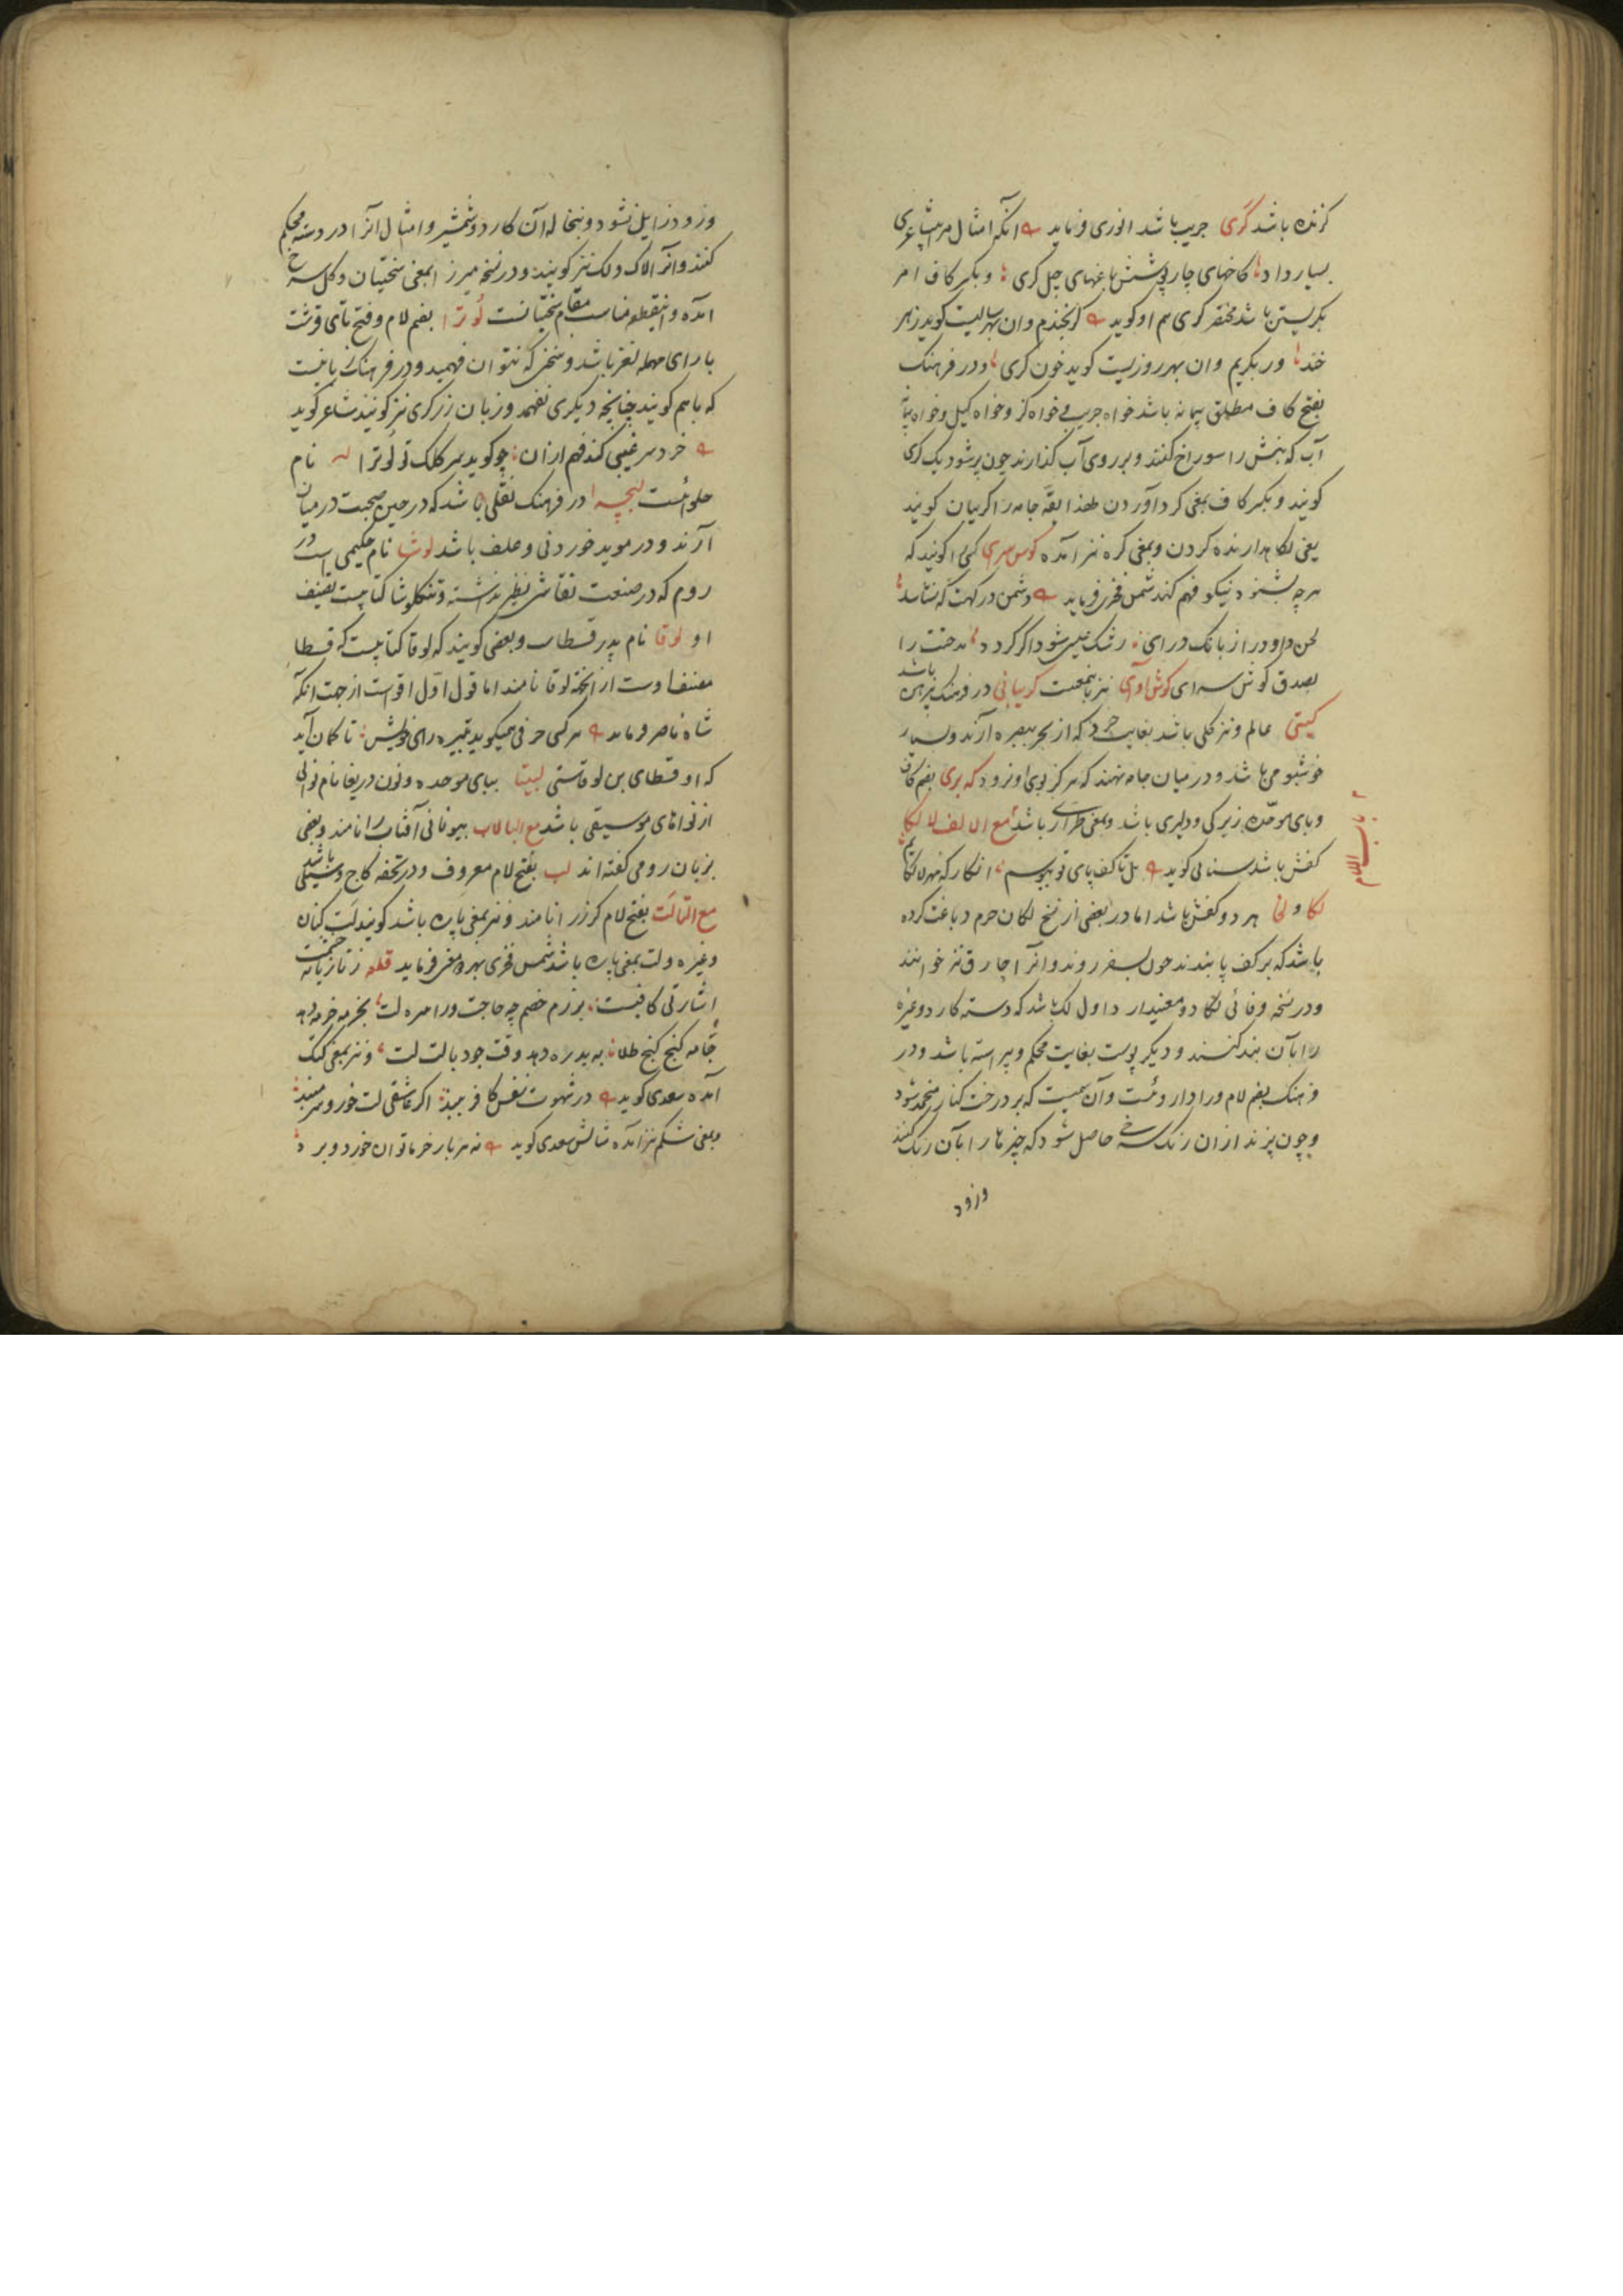 کزنده باشد گری جریب باشد انوری فرماید انکه امثال مرا شاعری
بسیار داد کاخهای چار پوشش باغهای چل کری و بکسر کاف امر
بکریستن باشد مختصر کری هم او کوید کر بخندم وان بهر سالیست کوید زهر
خند ور بکریم وان بهر روزیست کوید خون کری و در فرهنک
بفتح کاف مطلق پیمانه باشد خواه جریب و خواه کز و خواه کیل و خواه
آب که بنش را سوراخ کنند و بر روی آب کذارند چون پر شود یک کری
کویند و بکسر کاف بمعنی کرد آوردن لهذا یقه جامه را کریبان کویند
یعنی نکاهدارنده کردن و بمعنی کره نیز آمده کوش سرای کسی را کویند که
هرچه بشنود نیکو فهم کند شمس فخری فرماید دشمن در کهت که نشناسد
لحن داود را ز بانک درای رشک عیسی شود اگر کردد مدحتت را
بصدق کوش سرای کوش آوای نیز باینمعنیست کریبانی در فرهنک پیراهن باشد
کیتی عالم و نیز کلی باشد بغایت خرد که از بحر ببصره آرند و بسیار
خوشبو می باشد و در میان جامه نهند که هرکز بوی او نرود که بری بضم کاف
و بای موحده زیرکی و دلیری باشد و بمعنی طراری باشد مع الالف لا لکا
کفش باشد سنائی کوید بل تا کف پای تو ببوسم انکار که مهر لالکایم
باب اللام
لکا و لخا هر دو کفش باشد اما در بعضی از نسخ لکا چرم دباغت کرده
باشد که بر کف پا بندند چون بسفر روند و آنرا چارق نیز خوانند
و در نسخه وفائی لکا دو معنیدارد اول لک باشد که دسته کارد و غیره
را بآن بند کنند و دیکر پوست بغایت محکم و پیراسته باشد و در
فرهنک بضم لام و را دار وئست و آن صمغیست که بر درخت کنار منجمد شود
و چون پزند از آن رنک سرخی حاصل شود که چیزها را بآن رنک کنند
وزود
وزود زایل نشود و بنخاله آن کارد و شمشیر و امثال آنرا در دسته محکم
کنند و آنرا لاک و لک نیز کویند و در نسخه میرزا بمعنی سختیان و کل سرخ
آمده و اینقطعه مناسب مقام سختیانست لوترا بضم لام و فتح تای قرشت
با رای مهمله لغز باشد و سخنی که نتوان فهمید و در فرهنک زبانیست
که با هم کویند چنانچه دیکری نفهمد و زبان زرکری نیز کویند شاعر کوید
خرد سر غیبی کند فهم از آن چو کوید سر کلک تو لوترا لبه نام
حلوائست لبچرا در فرهنک نقلی باشد که در حین صحبت در میان
آرند و در موید خوردنی و علف باشد لوشا نام حکیمی است در
روم که در صنعت نقاشی نظیر نداشته و تنکلوشا کتابیست تصنیف
او لوقا نام پدر قسطاست و بعضی کویند که لوقا کتابیست که قسطا
مصنف اوست از آنجهة لوقا نامند اما قول اول اقواست از جهت آنکه
شاه ناصر فرماید هر کسی حرفی همیکوید بتیره رای خویش تا کمان آید
که او قسطای بن لوقاستی لبینا ببای موحده و نون در یغا نام نوائی
از نواهای موسیقی باشد مع البا لاب بیونانی آفتاب را نامند و بعضی
بزبان رومی کفته اند لب بفتح لام معروف و در تحفه کاج و سیلی باشد
مع التا لت بفتح لام کرز را نامند و نیز بمعنی پاره باشد کویند لت کتان
و غیره و لت بمعنی پاره باشد شمس فخری بهر دو معنی فرماید قطعه ز تازیانه
اشارتی کافیست برزم خصم چه حاجت ورا مره لت بخرمه خرمه دهد
جامه کنج کنج طلا به بدره دهد وقت جود یا لت لت و نیز بمعنی کتک
آمده سعدی کوید در شهوت نفس کافر ببند اکر عاشقی لت خور و سر مبند
و بمعنی شکم نیز آمده مثالش سعدی کوید نه هر بار خرما توان خورد و برد